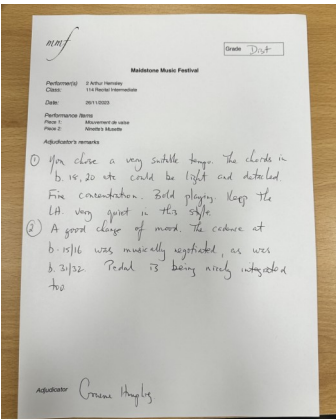 mmf
Grade Dist
Maidstone Music Festival
Performer(s) 2 Arthur Hemsley
Class: 114 Recital Intermediate
Date: 26/11/2023
Performance Items
Piece 1: Mouvement de valse
Piece 2: Ninette's Musette
Adjudicator's remarks
① You chose a very suitable tempo. The chords in
b. 18, 20 etc could be light and detached.
Fine concentration. Bold playing. Keep the
LH. very quiet in this style.
② A good change of mood. The cadence at
b. 15/16 was musically negotiated, as was
b. 31/32. Pedal is being nicely integrated
too.
Adjudicator Graeme